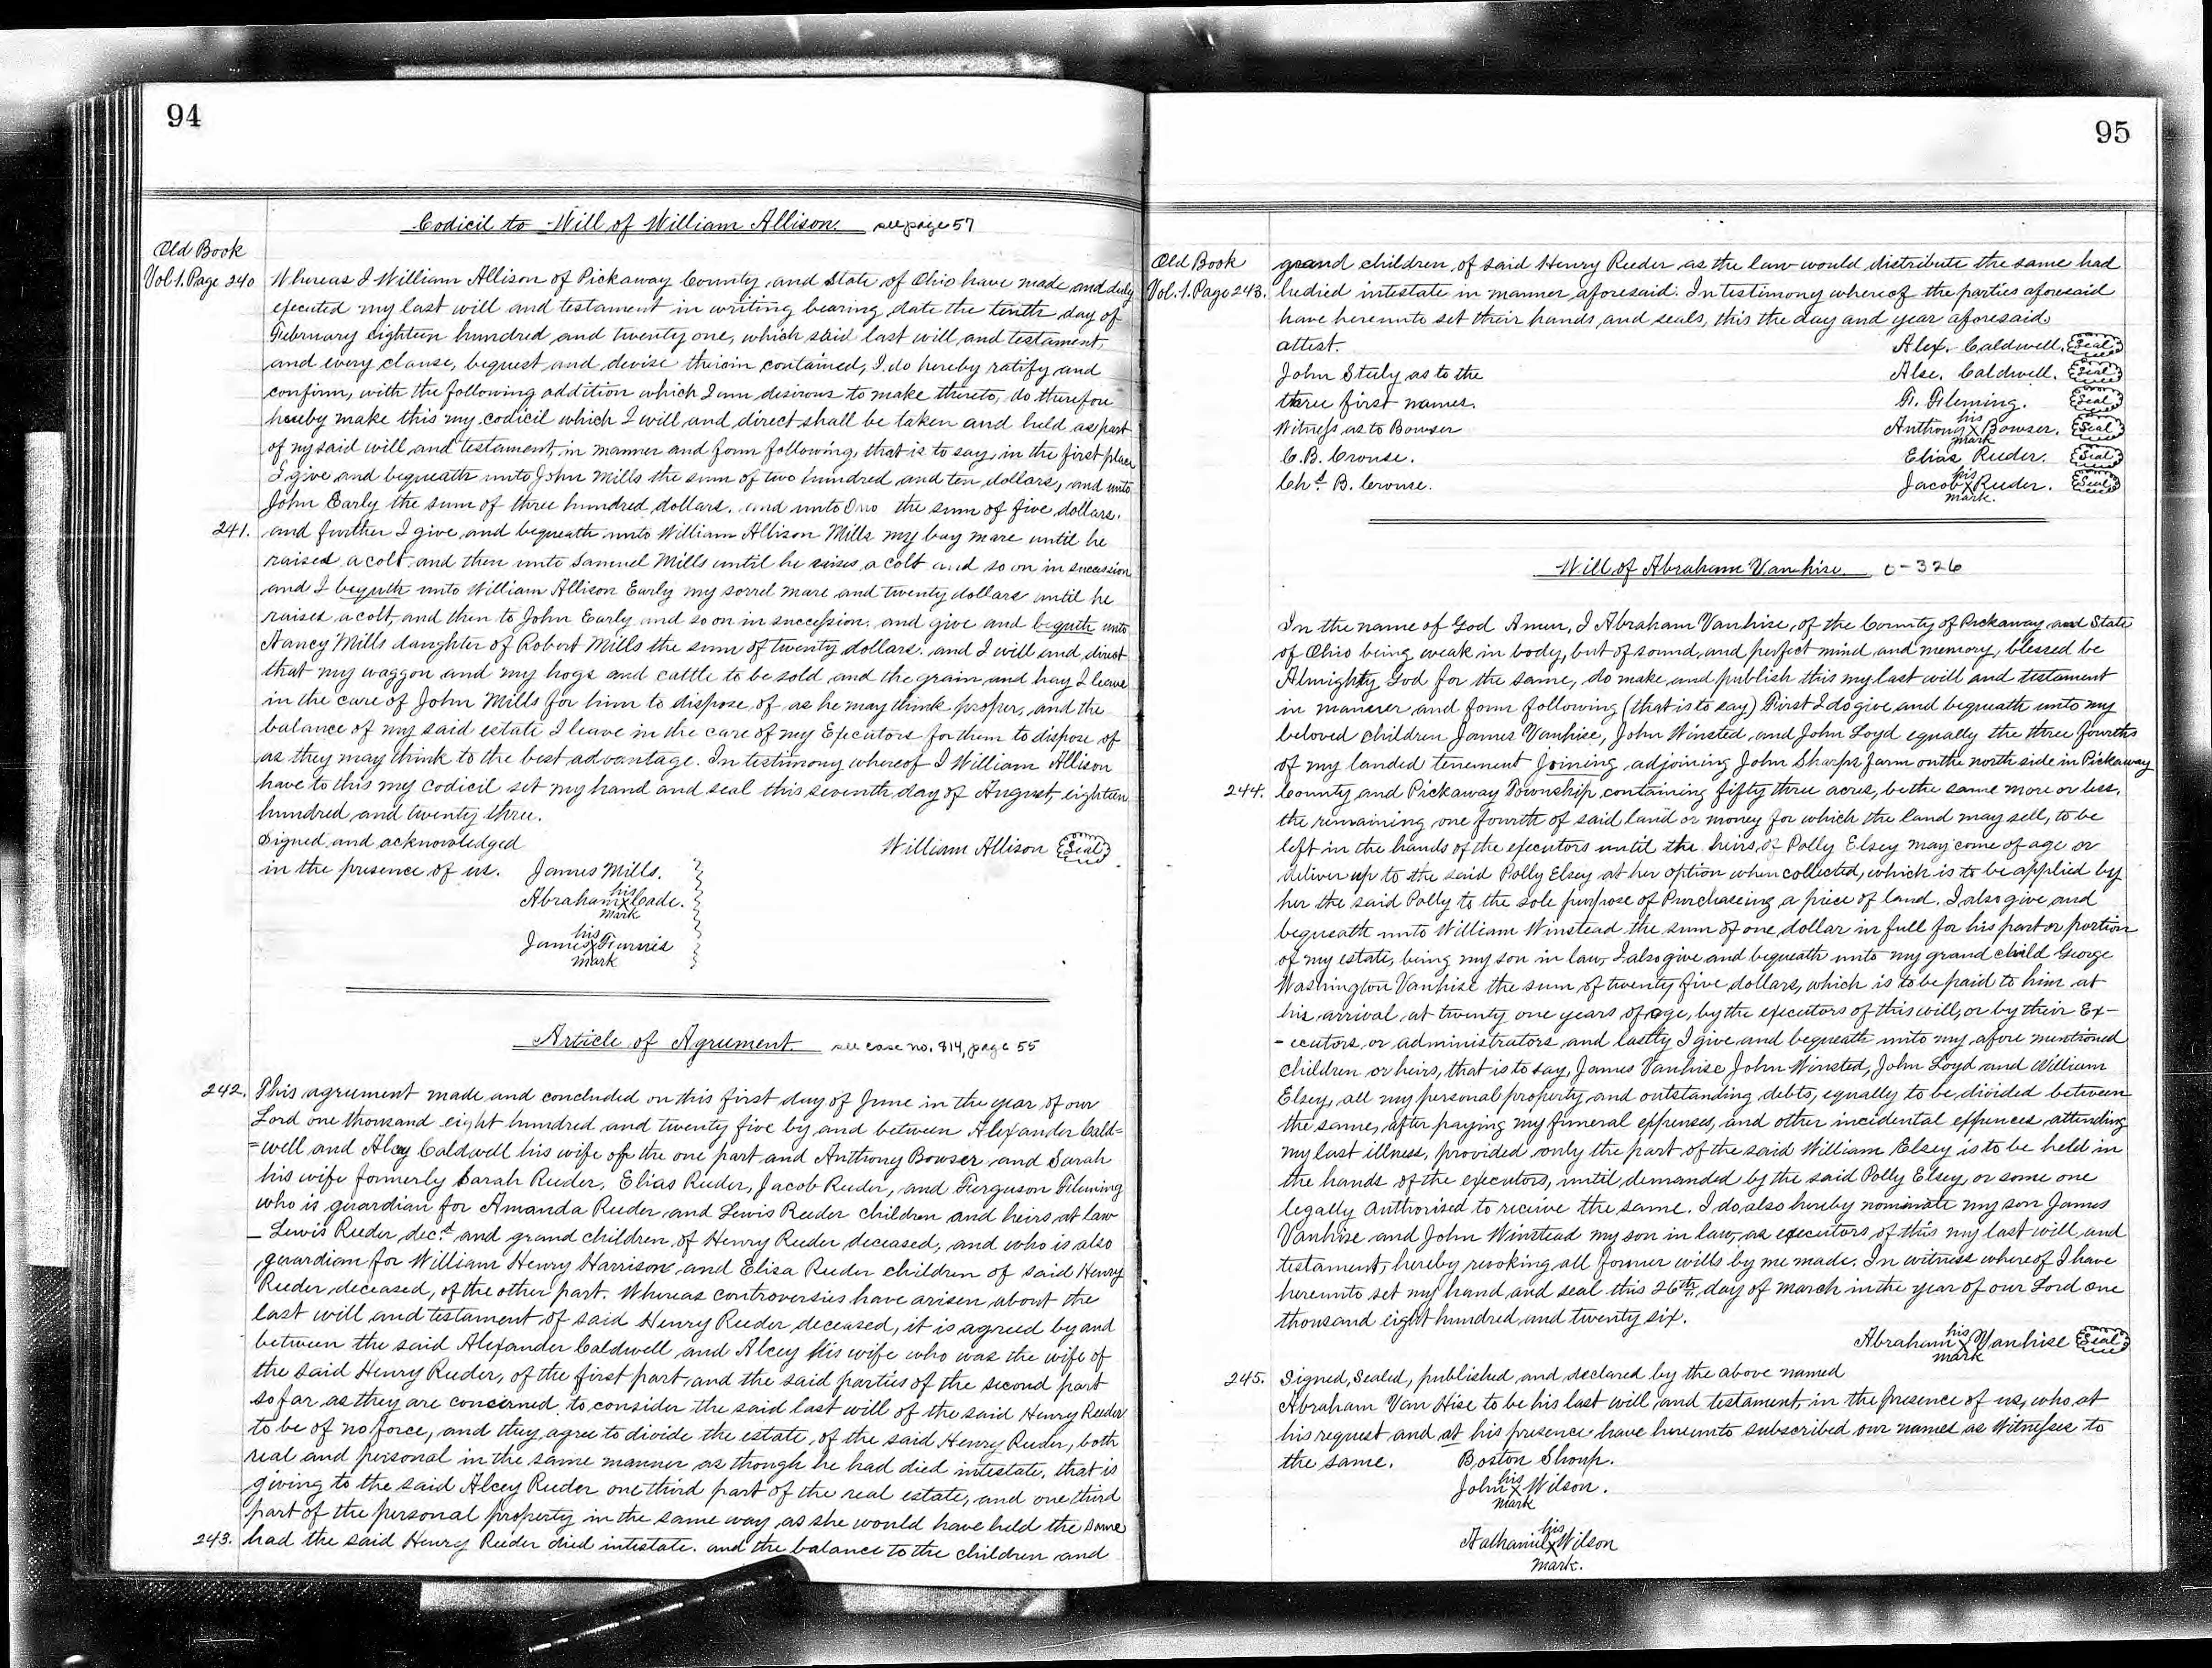 94
Codicil to Will of William Allison. see page 57
Old Book
Vol 1. Page 240 Whereas I William Allison of Pickaway County and State of Ohio have made and duly
executed my last will and testament in writing bearing date the tenth day of
February eighteen hundred and twenty one, which said last will and testament,
and every clause, bequest and devise therein contained, I do hereby ratify and
confirm, with the following addition which I am desirous to make thereto, do therefore
hereby make this my codicil which I will and direct shall be taken and held as part
of my said will and testament, in manner and form following, that is to say, in the first place
I give and bequeath unto John Mills the sum of two hundred and ten dollars, and unto
John Early the sum of three hundred dollars. and unto the sum of five dollars.
241. and further I give and bequeath unto William Allison Mills my bay mare until he
raised a colt and then unto Samuel Mills until he raises a colt and so on in succession
and I bequith unto William Allison Early my sorrel mare and twenty dollars until he
raises a colt, and then to John Early and so on in succession. and give and bequith unto
Nancy Mills daughter of Robert Mills the sum of twenty dollars. and I will and direct
that my waggon and my hogs and cattle to be sold and the grain and hay I leave
in the care of John Mills for him to dispose of as he may think proper, and the
balance of my said estate I leave in the care of my Executors for them to dispose of
as they may think to the best advantage. In testimony whereof I William Allison
have to this my codicil set my hand and seal this seventh day of August, eighteen
hundred and twenty three.
Signed and acknowledged William Allison Seal
in the presence of us. James Mills.
his
Abraham X Cade.
mark
his
James X
mark
Article of Agrument. see case no. 814, page 55
242. This agrument made and concluded on this first day of June in the year of our
Lord one thousand eight hundred and twenty five by and between Alexander Cald=
=well and Alcy Caldwell his wife of the one part and Anthony Bowser and Sarah
his wife formerly Sarah Reeder, Elias Reeder, Jacob Reeder, and Furguson Fleming
who is guardian for Amanda Reeder and Lewis Reeder children and heirs at law
_ Lewis Reeder dec.d and grand children of Henry Reeder deceased, and who is also
guardian for William Henry Harrison and Elisa Reeder children of said Henry
Reeder deceased, of the other part. Whereas controversies have arisen about the
last will and testament of said Henry Reeder deceased, it is agreed by and
between the said Alexander Caldwell and Alcey his wife who was the wife of
the said Henry Reeder, of the first part, and the said parties of the second part
so far as they are concerned, to consider the said last will of the said Henry Reeder
to be of no force, and they agree to divide the estate of the said Henry Reeder, both
real and personal in the same manner as though he had died intestate, that is
giving to the said Alcey Reeder one third part of the real estate, and one third
part of the personal property in the same way as she would have held the same
243. had the said Henry Reeder died intestate. and the balance to the children and
95
Old Book grand children of said Henry Reeder as the law would distribute the same had
Vol. 1. Page 243. he died intestate in manner aforesaid. In testimony whereof the parties aforesaid
have hereunto set their hands and seals, this the day and year aforesaid.
attest. Alex. Caldwell. Seal
John Stuly as to the Alse. Caldwell. Seal
three first names. F. Fleming. Seal
his
Witness as to Bowser Anthony X Bowser. Seal
mark
C. B. Crouse. Elias Reeder. Seal
his
Chs. B. Crouse. Jacob X Reeder. Seal
mark.
Will of Abraham Vanhise. 0-326
In the name of God Amen, I Abraham Vanhise, of the County of Pickaway and State
of Ohio being weak in body, but of sound and perfect mind and memory, blessed be
Almighty God for the same, do make and publish this my last will and testament
in manner and form following (that is to say) First I do give and bequeath unto my
beloved children James Vanhise, John Winsted and John Loyd equally the three fourths
of my landed tenement joining adjoining John Sharps farm on the north side in Pickaway
244. County and Pickaway Township containing fifty three acres, be the same more or less.
the remaining one fourth of said land or money for which the land may sell, to be
left in the hands of the executors until the heirs of Polly Elsey may come of age or
deliver up to the said Polly Elsey at her option when collected, which is to be applied by
her the said Polly to the sole purpose of Purchaseing a piece of land. I also give and
bequeath unto William Winstead the sum of one dollar in full for his part or portion
of my estate, being my son in law, I also give and bequeath unto my grand child George
Washington Vanhise the sum of twenty five dollars, which is to be paid to him at
his arrival at twenty one years of age, by the executors of this will, or by their Ex-
-ecutors or administrators and lastly I give and bequeath unto my afore mentioned
children or heirs, that is to say, James Vanhise John Winsted, John Loyd and William
Elsey, all my personal property and outstanding debts, equally to be divided between
the same, after paying my funeral expenses, and other incidental expences attending
my last illness, provided only the part of the said William Elsey is to be held in
the hands of the executors, until demanded by the said Polly Elsey, or some one
legally authorised to receive the same. I do also hereby nominate my son James
Vanhise and John Winstead my son in law, as executors of this my last will and
testament, hereby revoking all former wills by me made. In witness whereof I have
hereunto set my hand and seal this 26th day of March in the year of our Lord one
thousand eight hundred and twenty six.
his
Abraham X Vanhise Seal
mark
245. Signed, Sealed, published and declared by the above named
Abraham Van Hise to be his last will and testament in the presence of us, who at
his request and at his presence have hereunto subscribed our names as Witnesses to
the same. Boston Shoup.
his
John X Wilson.
mark
his
Nathaniel X Wilson
mark.